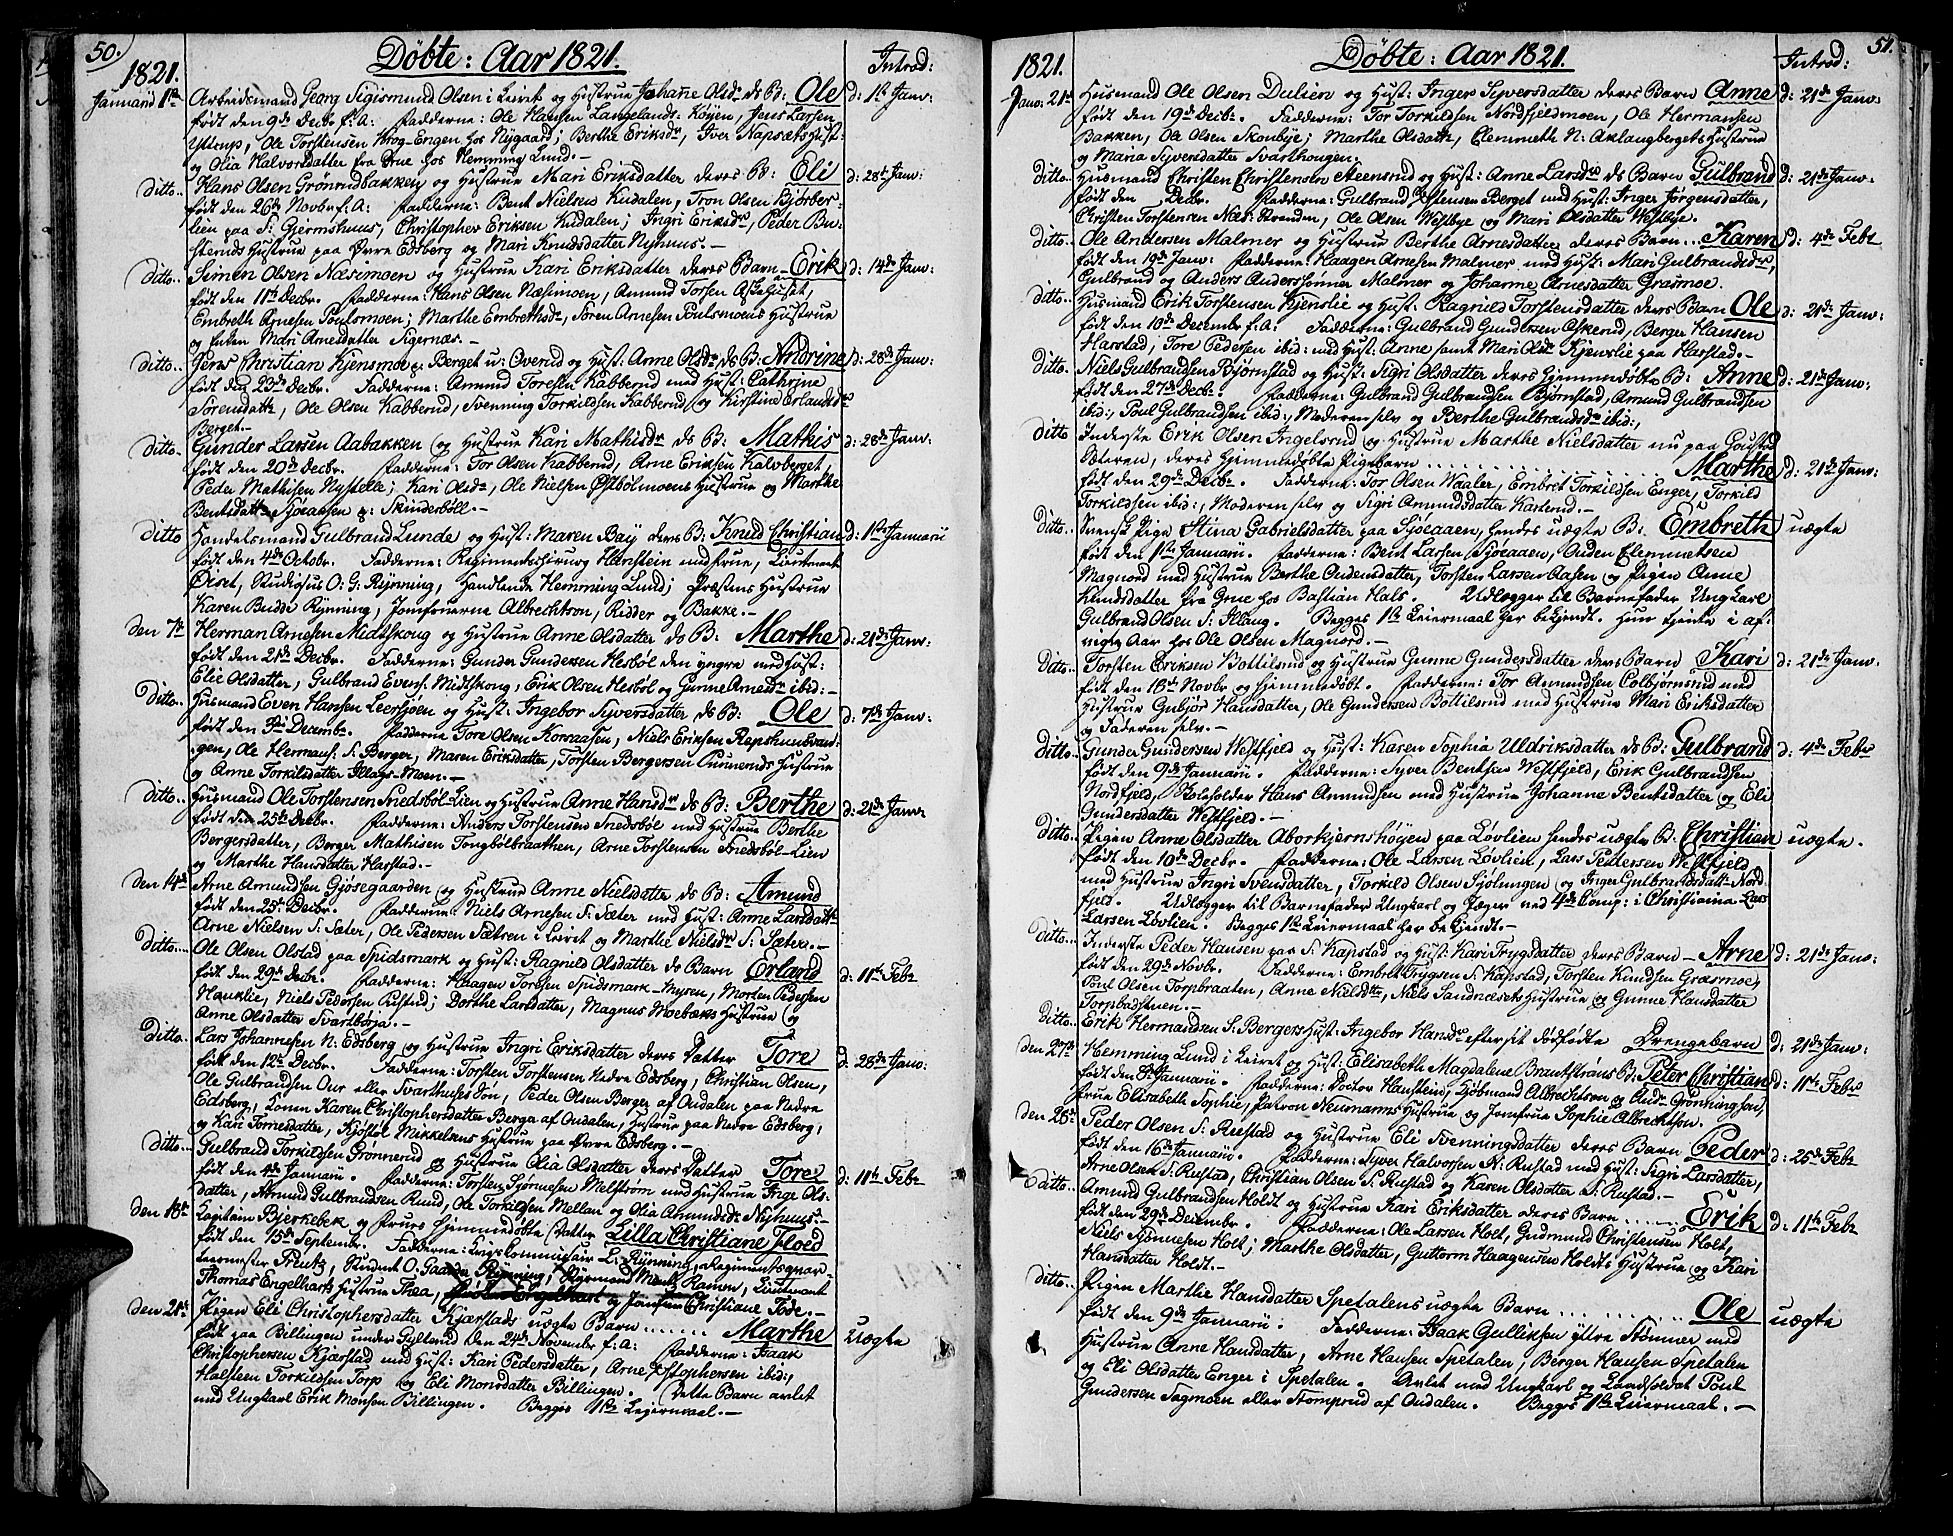 50.
Döbte: Aar 1821.
Introd:
1821.
Januarii 1ste Arbeidsmand Georg Sigismund Olsen i Leiret og Hustrue Johane Olsdr ds B: Ole d: 1ste Janv:
født den 9de Decbr f: A: Fadderne: Ole Hansen Langelands-Köyen, Jens Larsen
Yttrup, Ole Torstensen Krog-Engen hos Nygaard; Berthe Eriksdr, Iver Napsæts Hust:
og Olia Halvorsdatter fra Grue hos Hemming Lund.-
Ditto.. Hans Olsen Grönrudbakken og Hustrue Mari Eriksdatter deres B: Eli d: 28de Janv:
født den 26de Novbr f: A: Fadderne: Bent Nielsen Kudalen, Tron Olsen Björber-
lien paa S: Gjermshuus, Christopher Eriksen Kudalen; Ingri Eriksdr, Peder Bu-
steruds Hustrue paa Övre Edsberg og Mari Knudsdatter Nyhuus.-
Ditto.. Simen Olsen Næsmoen og Hustrue Kari Eriksdatter deres Barn - Erik d: 14de Janv:
født den 11te Decbr. Fadderne: Hans Olsen Næsmoen, Amund Torsen Askehuset,
Embreth Arnesen Poulsmoen; Marthe Embrethsdr, Sören Arnesen Poulsmoens Hustrue
og Enken Mari Arnesdatter Sigernæs.-
Ditto.. Jens Christian Kjensmoe p: Berget u: Overud og Hust: Anne Olsdr ds B: Andrine d: 28de Janv:
født den 23de Decbr. Fadderne: Amund Toresen Kabberud med Hust: Cathrine
Sörensdattr, Ole Olsen Kabberud, Svenning Torkildsen Kabberud, og Kirstine Erlandsdr
Berget.-
Ditto.. Gunder Larsen Aabakken og Hustrue Kari Mathisdr ds B: Mathis d: 28de Janv:
født den 20de Decbr. Fadderne: Tor Olsen Kabberud, Arne Eriksen Kalvberget,
Peder Mathisen Nystelle; Kari Olsdr, Ole Nielsen Östbölmoens Hustrue og Marthe
Bentsdattr Sjöeaasen p: Skinderböll.-
Ditto Handelsmand Gulbrand Lunde og Hust: Maren Baÿ deres B: Knud Christian d: 1ste Januarii
født den 4de Octobr. Fadderne: Regimentschirurg Hanstein med Frue, Lieutenant
Öiset, Studiosus O: G: Rÿnning, Handlende Hemming Lund; Præstens Hustrue
Karen Budde Rÿnning, Jomfruerne Albrechtson, Ridder og Bakke.-
den 7de Herman Arnesen Midtskoug og Hustrue Anne Olsdatter ds B: Marthe d: 21de Janv:
født den 21de Decbr. Fadderne: Gunder Gundersen Hesböl den yngre med Hust:
Elie Olsdatter, Gulbrand Evens. Midtskoug, Erik Olsen Hesböl og Gunne Arnesdr ibid:-
Ditto.. Husmand Even Hansen Leersjöen og Hust: Ingebor Syversdatter ds B: Ole d: 7de Janv:
født den 3die Decembr. Fadderne Tore Olsen Korsaasen, Niels Eriksen Repshuusvan-
gen, Ole Hermans. S: Berger, Maren Eriksdatter, Torsten Bergersen Gunneruds Hustrue
og Anne Torkilsdatter Illags-Moen.-
Ditto.. Husmand Ole Torstensen Fredsböl-Lien og Hustrue Anne Hansdr ds B: Berthe d: 21de Janv:
født den 25de Decbr. Fadderne: Anders Torstensen Fredsböl med Hustrue Berthe
Bergersdatter, Berger Mathisen Tongbölbraathen, Arne Torstensen Fredsböl-Lien
og Marthe Hansdatter Harstad.-
den 14de Arne Amundsen Gjösegaarden og Hustrue Anne Nielsdatter ds B: Amund
født den 25de Decbr. Fadderne: Niels Arnesen S: Sæter med Hust: Anne Larsdattr
Arne Nielsen S: Sæter, Ole Pedersen Sætren i Leiret og Marthe Nielsdr S: Sæter.-
Ditto.. Ole Olsen Olstad paa Spidsmark og Hust: Ragnild Olsdatter ds Barn Erland d: 11te Febr
født den 29de Decbr. Fadderne: Haagen Toresen Spidsmark-Myren, Morten Pedersen
Hauklie, Niels Pedersen Refsted; Dorthe Larsdatter, Magnus Moebæks Hustrue og
Anne Olsdatter Svartbörja.-
Ditto. Lars Johannesen N: Edsberg og Hustrue Ingri Eriksdatter deres Datter Tore d: 28de Janv:
født den 12te Decbr. Fadderne: Torsten Torstensen Nedre Edsberg, Christian Olsen,
Ole Gulbrandsen Our eller Svarthuusesdön, Peder Olsen Berger af Oudalen paa Nedre
Edsberg, Konen Karen Christophersdatter Berga af Oudalen, Hustrue paa Nedre Edsberg,
og Kari Tomesdatter, Kjöstöl Mikkelsens Hustrue paa Övre Edsberg.-
Ditto.. Gulbrand Torkildsen Grönnerud og Hustrue Olia Olsdatter deres Datter Tore d: 11te Febr
født den 4de Januarii. Fadderne: Torsten Sjönnesen Melström med Hustrue Inge Ols-
datter, Amund Gulbrandsen Ruud, Ole Torkildsen Mellau og Olia Amundsdr Nyhuus.-
den 18de Capitain Bjerkebek og Frues hjemmedöbte Datter Lilla Christiane Floed
født den 15de Septembr. Fadderne: Krigscommissair L. Rÿnning, Regimentsqvar-
teermester Frentz, Student O: Gaarder Rÿnning, Ramm, Lieutenant
Thomas Engelharts Hustrue Thea, og Jomfrue Christiane Tode.-
den 21de Pigen Eli Christophersdatter Kjærstads uægte Barn ....... Marthe uægte
født paa Billingen under Gylterud den 24de Novembr f: A: Fadderne: Isaak
Christophersen Kjærstad med Hust: Kari Pedersdatter, Arne Christophersen ibid:,
Halsteen Torkildsen Torp og Eli Monsdatter Billingen. Dette Barn avlet
med Ungkarl Erik Monsen Billingen. Begges 1ste Lejermaal.-
51.
Döbte: Aar 1821.
Introd:
1821.
Janv: 21de Husmand Ole Olsen Dulien og Hust: Inger Syversdatter deres Barn Anne d: 21de Janv:
født den 19de Decbr. Fadderne: Tor Torkildsen Nordfjeldmoen, Ole Hermansen
Bakken, Ole Olsen Skonbye; Marthe Olsdattr, Clemmeth N: Aklangbergets Hustrue
og Maria Syversdatter Svarthougen.
Ditto.. Husmand Christen Christensen Steensrud og Hust: Anne Larsdr ds Barn Gulbrand d: 21de Janv:
født den Decbr. Fadderne: Gulbrand Estensen Berget med Hust: Inger Jörgensdatter,
Christen Torstensen Næs-Strenden, Ole Olsen Westbye og Mari Olsdatter Westbye.
Ditto.. Ole Andersen Malmer og Hustrue Berthe Arnesdatter deres Barn .. Karen d: 4de Febr
født den 19de Janv: Fadderne: Haagen Arnesen Malmer med Hust: Mari Gulbrandsdr,
Gulbrand og Anders Anderssönner Malmer og Johanne Arnesdatter Grasmoe.
Ditto.. Husmand Erik Torstensen Kjenslie og Hust: Ragnild Torstensdatter deres Barn Ole d: 21de Janv:
født den 10de Decembr f: A: Fadderne: Gulbrand Gundersen Askerud, Berger Hansen
Harstad, Tore Pedersen ibid: med Hust: Anne samt Mari Olsdr Kjenslie paa Harstad.-
Ditto. Niels Gulbrandsen Björnstad og Hust: Sigri Olsdatter deres hjemmedöbte B: Anne d: 21de Janv:
født den 27de Decbr. Fadderne: Gulbrand Gulbrandsen Björnstad, Amund Gulbrandsen
ibid:, Poul Gulbrandsen ibid:, Moderen selv og Berthe Gulbrandsdr ibid:,
Ditto Inderste Erik Olsen Ingelsrud og Hustrue Marthe Nielsdatter nu paa Goustad
Sæteren, deres hjemmedöbte Pigebarn .................. Marthe d: 21de Janv:
født den 29de Decbr. Fadderne: Tor Olsen Waaler, Embret Torkildsen Enger, Torkild
Torkildsen ibid:, Moderen selv og Sigri Amundsdatter Karterud.-
Ditto.. Svensk Pige Stina Gabrielsdatter paa Sjöeaaen, hendes uægte B: Embreth uægte
født den 1ste Januarii. Fadderne: Bent Larsen Sjöeaaen, Ouden Clemmetsen
Magnord med Hustrue Berthe Oudensdatter, Torsten Larsen Aasen og Pigen Anne
Knudsdatter fra Grue hos Bastian Hals. Udlægger til Barnefader Ungkarl
Gulbrand Olsen S: Illaug. Begges 1ste Leiermaal her bekjendt. Hun tjente i af:
vigte Aar hos Ole Olsen Magnord.-
Ditto.. Torsten Eriksen Bottilsrud og Hustrue Gunne Gundersdatter deres Barn Kari d: 21de Janv:
født den 18de Novbr og hjemmedöbt. Fadderne: Tor Amundsen Colbjörnsrud med
Hustrue Gubjör Hansdatter, Ole Gundersen Bottilsrud med Hustrue Mari Eriksdatter
og Faderen selv.-
Ditto.. Gunder Gundersen Westfjeld og Hust: Karen Sophia Uldriksdatter ds B: Gulbrand d: 4de Febr
født den 9de Januarii. Fadderne: Syver Bentsen Westfjeld, Erik Gulbrandsen
Nordfjeld, Skoleholder Hans Amundsen med Hustrue Johanne Bentsdatter og Eli
Gundersdatter Westfjeld.-
Ditto.. Pigen Anne Olsdatter Aborkjernshöyen paa Lövlien hendes uægte B: Christian uægte.
født den 10de Decbr. Fadderne: Ole Larsen Lövlien, Lars Pedersen Westfjeld
med Hustrue Ingri Svensdatter, Torkild Olsen Sjölungen og Inger Gulbrandsdattr Nord-
fjeld. Udlægger til Barnefader Ungkarl og Jæger ved 4de Comp: i Christiania Lars
Larsen Lövlien. Begges 1ste Leiermaal her bekjendt.-
Ditto.. Inderste Peder Hansen paa S: Kapstad og Hust: Kari Trygsdatter deres Barn - Arne d: 21de Janv:
født den 29de Novbr. Fadderne: Embret Trygsen S: Kapstad, Torsten Knudsen Græsmoe,
Poul Olsen Torpbraaten, Anne Nielsdtr, Niels Sandnæsets Hustrue og Gunne Hansdatter
Torpbadstuen.-
Ditto.. Erik Hermandsen S: Bergers Hust: Ingebor Hansdr efter sit dödfödte Drengebarn d: 21de Janv:
den 27de Hemming Lund i Leiret og Hust: Elisabeth Magdalene Brantströms B: Peter Christian d: 11te Febr
født den 8de Januarii. Fadderne: Doctor Hanstein, Kjöbmand Albrechtson og And: Grönningson,
Frue Elisabeth Sophie, Patron Neumanns Hustrue og Jomfrue Sophie Albrechtson.
den 28de Peder Olsen S: Rustad og Hustrue Eli Svenningsdatter deres Barn Peder d: 25de Febr
født den 16de Januarii. Fadderne: Syver Halvorsen N: Rustad med Hust: Sigri Larsdatter,
Arne Olsen S: Rustad, Christian Olsen S: Rustad og Karen Olsdatter S: Rustad.-
Ditto.. Amund Gulbrandsen Holdt og Hustrue Kari Eriksdatter deres Barn ...... Erik d: 11te Febr
født den 29de Decembr. Fadderne: Ole Larsen Holt, Gudmund Christensen Holt,
Niels Sjönnesen Holt; Marthe Olsdatter, Guttorm Haagensen Holdts Hustrue og Kari
Hansdatter Holdt.-
Ditto.. Pigen Marthe Hansdatter Spetalens uægte Barn ............ Ole uægte
født den 9de Januarii. Fadderne: Isaak Gulliksen yttre Stömner med
Hustrue Anne Hansdatter, Arne Hansen Spetalen, Berger Hansen Spetalen
og Eli Olsdatter Enger i Spetalen. Avlet med Ungkarl og Landsoldat Poul
Gundersen Sagmoen eller Stomprud af Oudalen. Begges 1ste Leiermaal.-